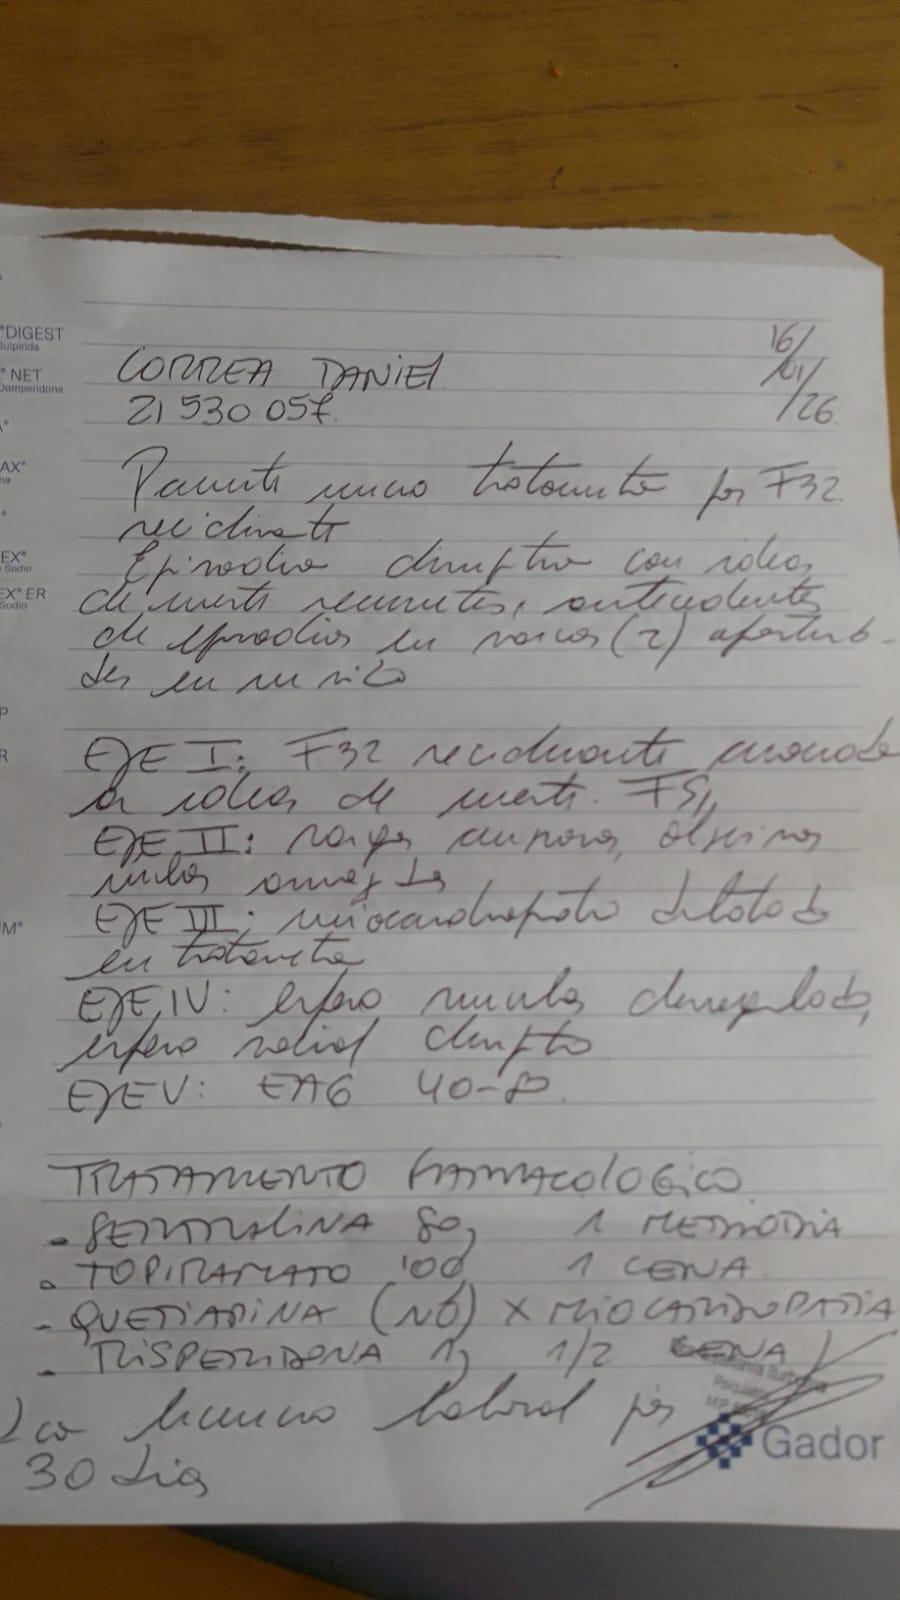 CORREA DANIEL
21 530 057.
16/01/26
Paciente inicia tratamiento por F32
recidivante
Episodios disruptivos con ideas
de muerte recurrentes, antecedentes
de episodios en varias (2) oportunida-
des en su vida
EJE I: F32 recidivante
ideas de muerte. F51
EJE II: rasgos
EJE III: miocardiopatia dilatada
en tratamiento
EJE IV: esfera vincular desregulada,
esfera social disruptiva
EJE V: EAG 40-50.
TRATAMIENTO FARMACOLOGICO
- SERTRALINA 50 1 MEDIODIA
- TOPIRAMATO 100 1 CENA
- QUETIAPINA (NO) X MIOCARDIOPATIA
- RISPERIDONA 1 1/2 CENA
licencia laboral por
30 dias
DIGEST
Sulpirida
NET
Domperidona
AX
EX
Sodio
EX ER
Sodio
P
R
UM
Psiquiatra
Gador